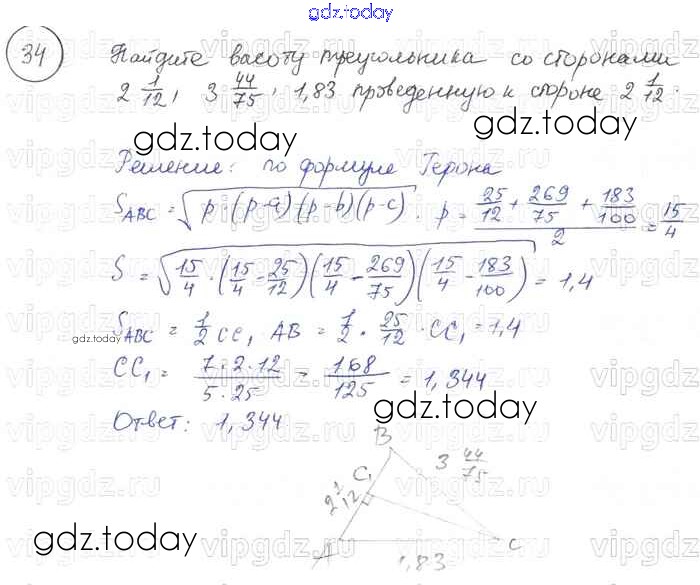 gdz.today
34
Найдите высоту треугольника со сторонами
2 1/12, 3 44/75, 1,83 проведенную к стороне 2 1/12.
gdz.today
gdz.today
Решение: по формуле Герона
S_ABC = √(p·(p-a)(p-b)(p-c)). p = (25/12 + 269/75 + 183/100)/2 = 15/4
S = √(15/4·(15/4 - 25/12)(15/4 - 269/75)(15/4 - 183/100)) = 1,4
S_ABC = 1/2 CC₁ AB = 1/2 · 25/12 · CC₁ = 1,4
gdz.today
CC₁ = (7·2·12)/(5·25) = 168/125 = 1,344
gdz.today
Ответ: 1,344
B
3 44/75
C₁
2 1/12
A
C
1,83
gdz.today
gdz.today
vipgdz.ru